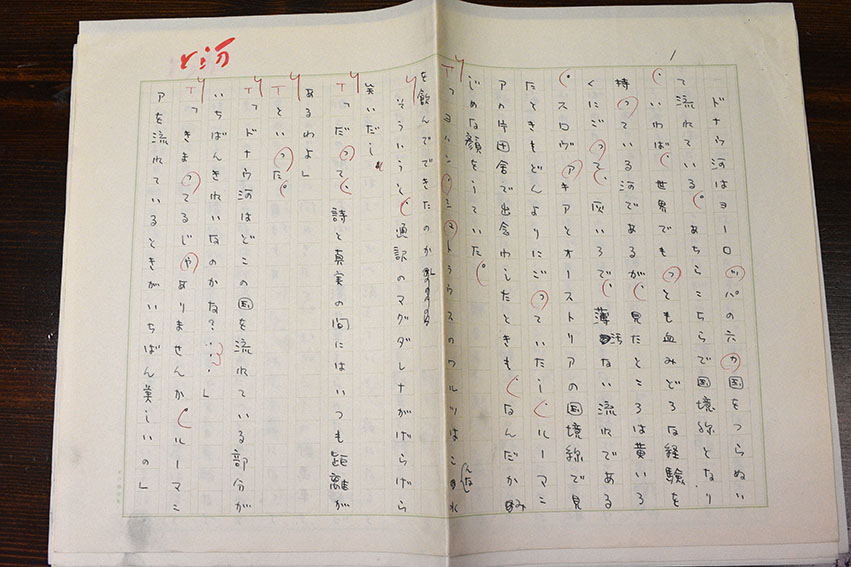 1
ドナウ河はヨーロッパの六カ国をつらぬい
て流れている。あちらこちらで国境線となり
、いわば、世界でもっとも血みどろな経験を
持っている河であるが、見たところは黄いろ
くにごって、灰いろで、薄汚ない流れである
。スロヴァキアとオーストリアの国境線で見
たときもどんよりにごっていたし、ルーマニ
アの片田舎で出会わしたときも、なんだかみ
じめな顔をしていた。
「ヨハン・シュトラウスのワルツはこんな水
を飲んでできたのか
そういうと、通訳のマグダレナがげらげら
笑いだし
「だって、詩と真実の間にはいつも距離が
あるわよ」
といった。
「ドナウ河はどこの国を流れている部分が
いちばんきれいなのかな?……」
「きまってるじゃありませんか。ルーマニ
アを流れているときがいちばん美しいの」